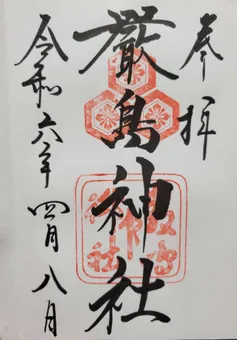 奉拝
厳島神社
令和六年四月八日